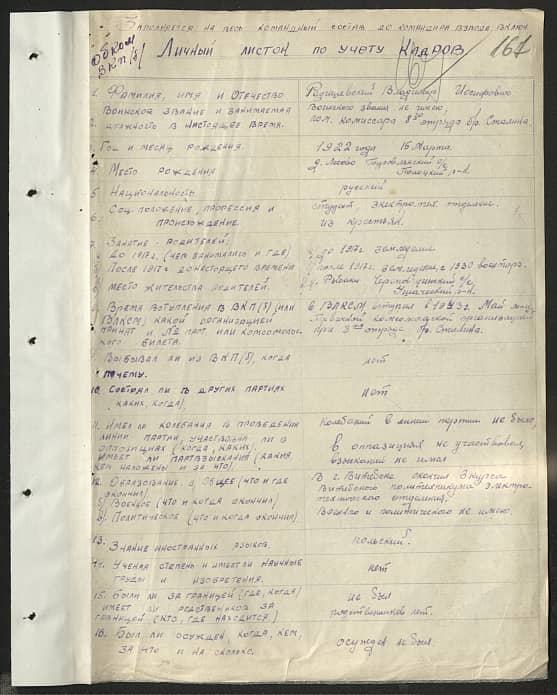 Заполняется на весь командный состав до командира взвода, включ.
Обком
ВКП(б)
Личный листок по учету кадров
167
1. Фамилия, имя и отчество
Владимир Иосифович
Воинское звание и занимаемая
Воинского звания не имею,
2. должность в настоящее время.
пом. комиссара отряда бр. Сталина
3. Год и месяц рождения.
1922 года 16 марта.
4. Место рождения
Полоцкий р-н
5. Национальность
русский
6. Соц. положение, профессия и
студент, электротех. отделение.
происхождение.
из крестьян.
7. Занятие родителей:
а) до 1917г. (чем занимались и где)
до 1917г. земледелие
б) После 1917г. до настоящего времени
после 1917г. земледелие, с 1930
8. Место жительства родителей.
Ушачский р-н.
9. Время вступления в ВКП(б) (или
В ВЛКСМ вступил в 1943г. Май
ВЛКСМ, какой организацией
комсомольской организацией
принят и № парт. или комсомольс-
при отряде бр. Сталина.
кого билета.
Выбывал ли из ВКП(б), когда
нет
почему.
10. Состоял ли в других партиях
нет
каких, когда).
11. Имел ли колебания в проведении
Колебаний в линии партии не было,
линии партии, участвовал ли в
оппозициях (когда, каких)
в оппазициях не участвовал,
имеет ли партвзыскания (какия
взысканий не имел
кем наложены и за что).
12. Образование: а) Общее (что и где
В г. Витебске окончил 3 курса
окончил)
Витебского политехникума электро-
б) Военное (что и когда окончил)
технического отделения.
в) Политическое (что и когда окончил)
Военного и политического не имею.
13. Знание иностранных языков.
польский.
14. Ученая степень и имеет ли научные
нет
труды и изобретения.
15. Были ли за границей (где, когда)
не был
имеет ли родственников за
родственников нет.
границей (кто, где находится)
16. Был ли осужден, когда, кем,
осужден не был
за что и на сколько.